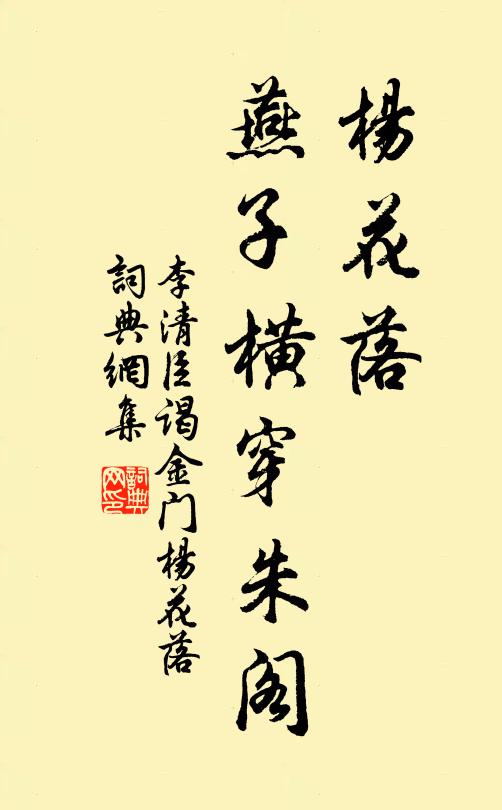 楊花落
燕子橫穿朱阁
李清臣谒金门楊花落
詞典網集
詞典网印